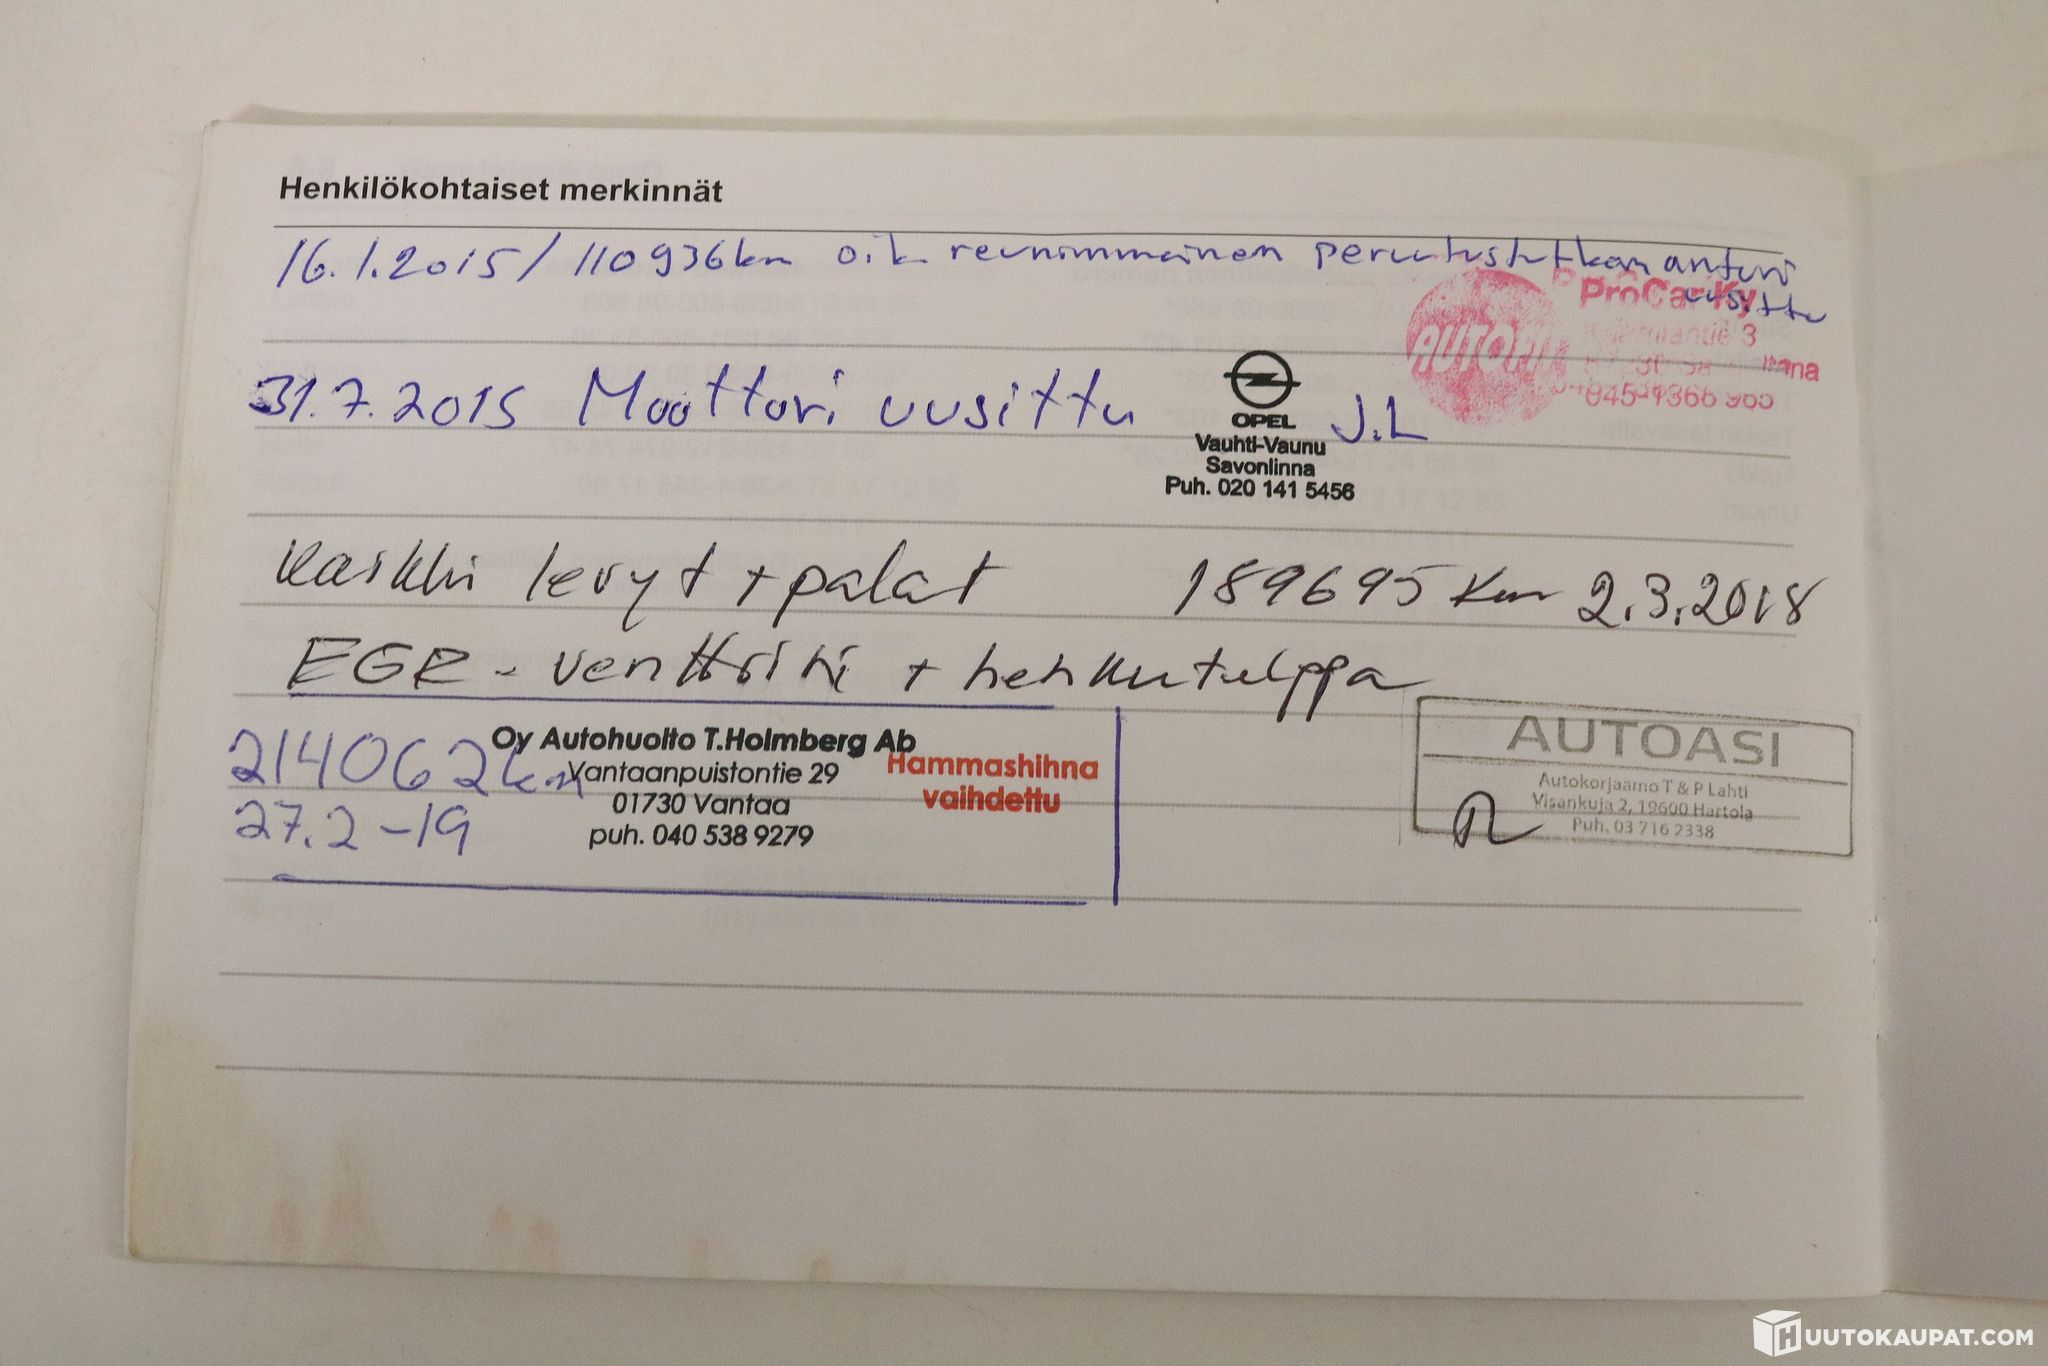 Henkilökohtaiset merkinnät
16.1.2015 / 110936km oik reunimmainen peruutustutkan anturi
uusittu
ProCar Ky
AUTOFIT
3
045-1366 965
31.7.2015 Moottori uusittu J.L
OPEL
Vauhti-Vaunu
Savonlinna
Puh. 020 141 5456
Kaikki levyt + palat 189695 km 2.3.2018
EGR - venttiili + hehkutulppa
214062km
27.2-19
Oy Autohuolto T.Holmberg Ab
Vantaanpuistontie 29
01730 Vantaa
puh. 040 538 9279
Hammashihna
vaihdettu
AUTOASI
Autokorjaamo T & P Lahti
Visankuja 2, 19600 Hartola
Puh. 03 716 2338
HUUTOKAUPAT.COM